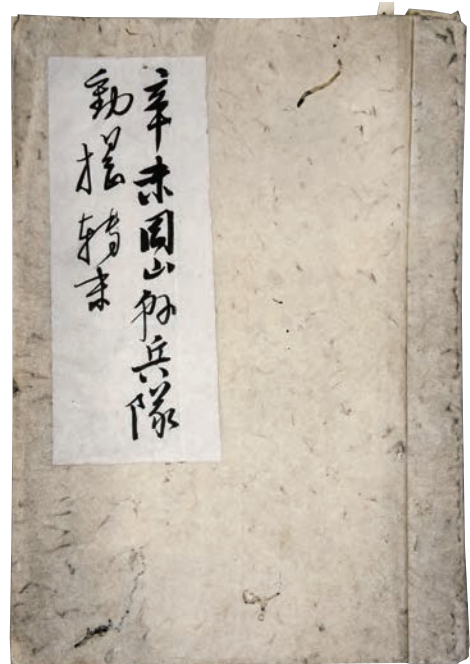 辛未岡山縣兵隊
動揺轉末